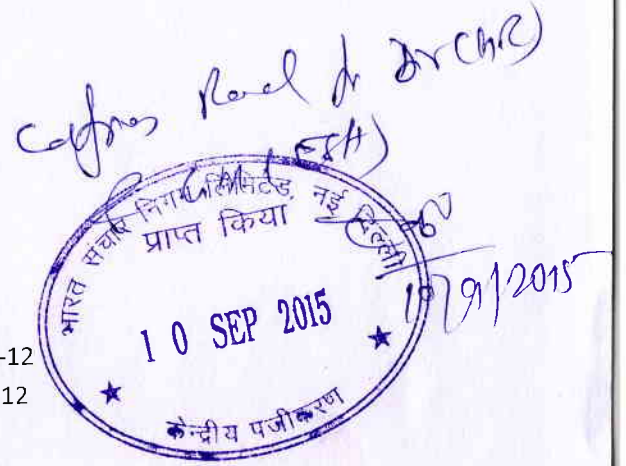 Copies Recd for Dir (HR)
भारत संचार निगम लिमिटेड, नई दिल्ली
प्राप्त किया
10 SEP 2015
केन्द्रीय पंजीकरण
10/9/2015
-12
12